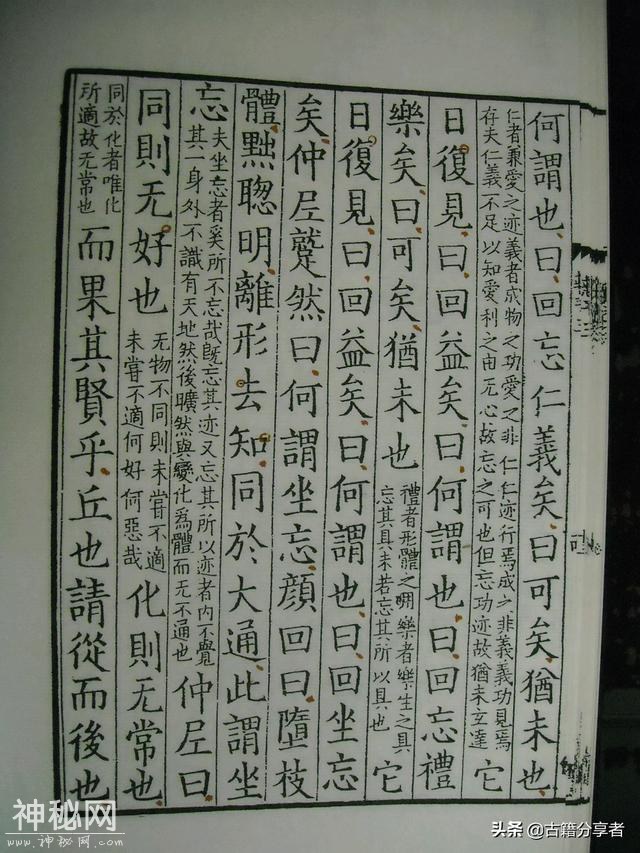 何謂也曰回忘仁義矣曰可矣猶未也
仁者兼愛之迹義者成物之功愛之非仁仁迹行焉成之非義義功見焉
存夫仁義不足以知愛利之由无心故忘之可也但忘功迹故猶未玄達
它
日復見曰回益矣曰何謂也曰回忘禮
樂矣曰可矣猶未也
禮者形體之用樂者樂生之具
忘其具未若忘其所以具也
它
日復見曰回益矣曰何謂也曰回坐忘
矣仲尼蹵然曰何謂坐忘顏回曰墮枝
體黜聰明離形去知同於大通此謂坐
忘
夫坐忘者奚所不忘哉旣忘其迹又忘其所以迹者内不覺
其一身外不識有天地然後曠然與變化爲體而无不通也
仲尼曰
同則无好也
无物不同則未嘗不適
未嘗不適何好何惡哉
化則无常也
同於化者唯化
所適故无常也
而果其賢乎丘也請從而後也
神秘网
www.神秘网.com
头条 @古籍分享者